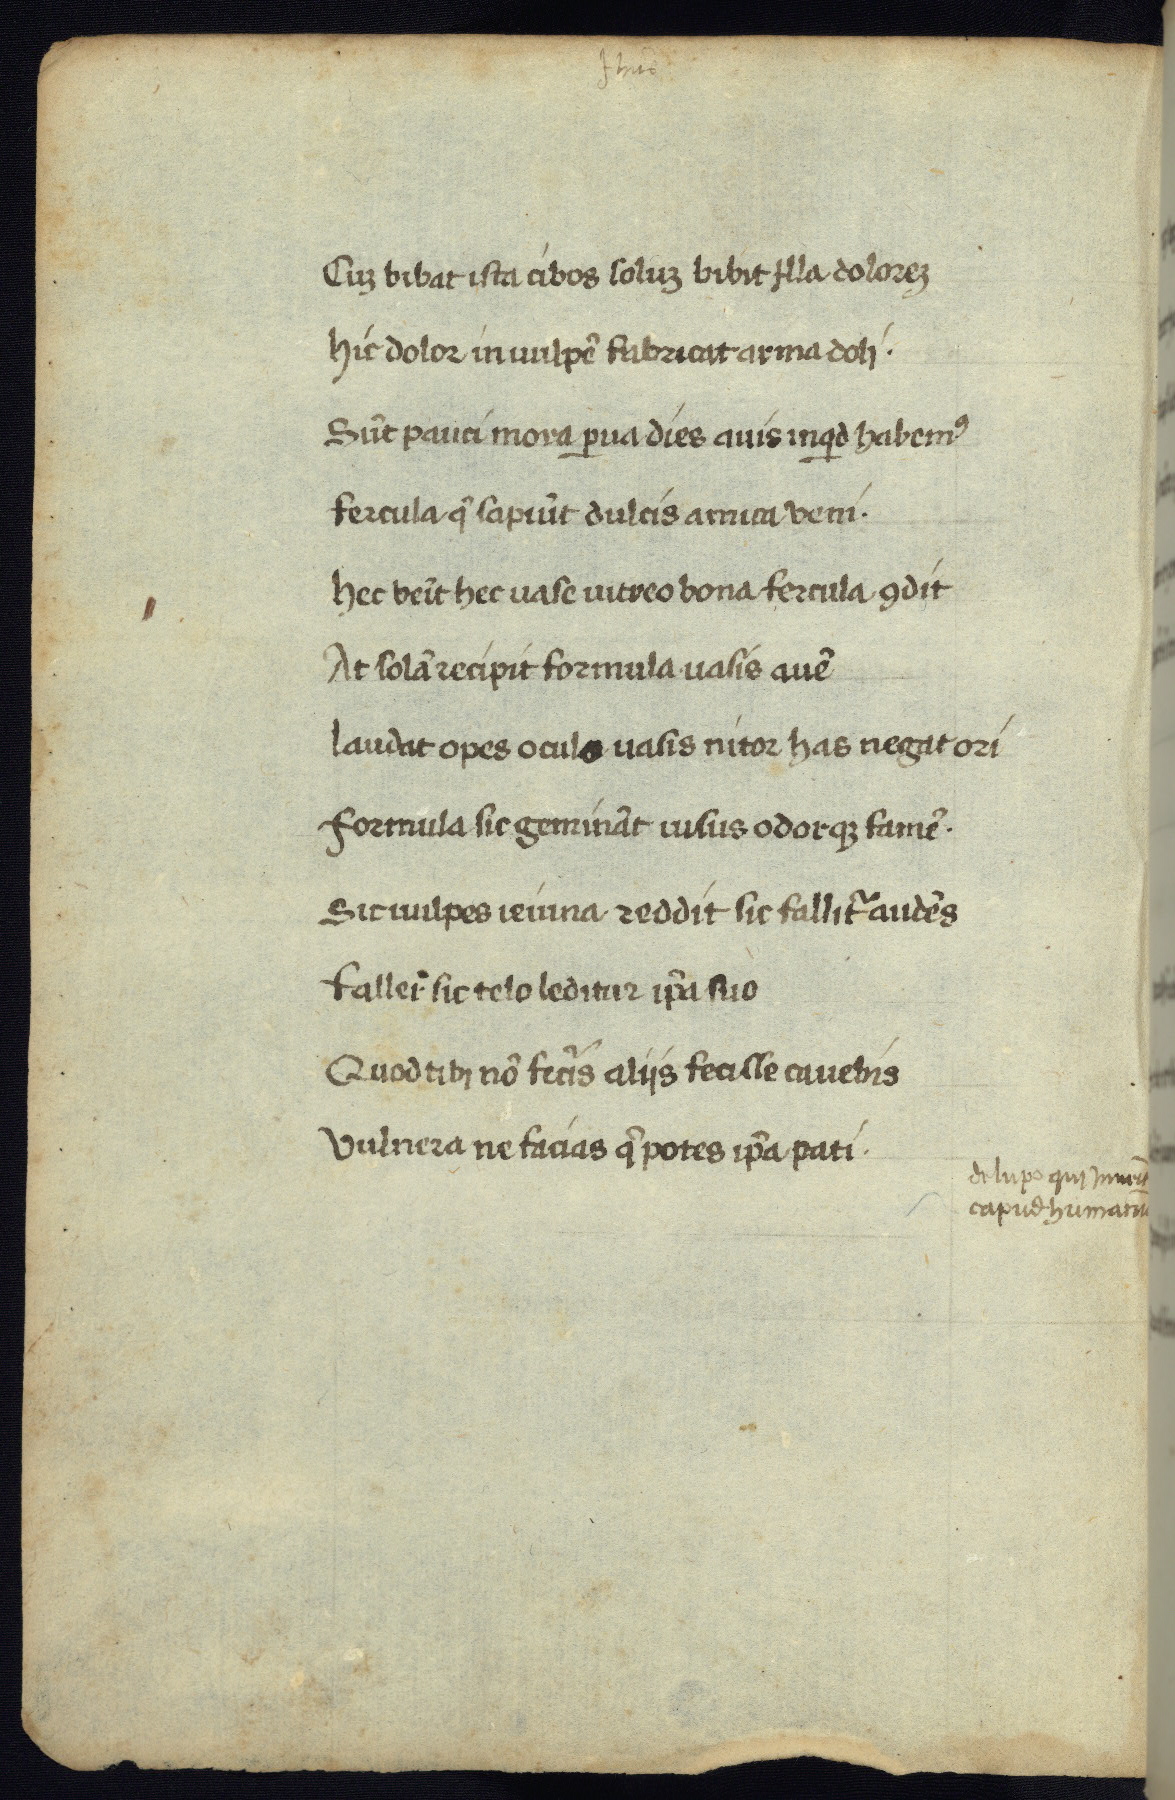 Jhus
Cuʒ bibat ista cibos soluʒ bibit illa doloreʒ
hic dolor in uulpē fabricat arma doli.
Sūt pauci mora ꝑua dies auis inqͥd habemꝰ
fercula q̄ sapiūt dulcis amica veni.
hec veīt hec uase uitreo bona fercula ꝯdit
At solā recipit formula uasis auē
laudat opes oculo uasis nitor has negat ori
formula sic gemināt uisus odorqʒ famē.
Sic uulpes ieiuna reddit sic fallit᷑ audēs
faller̄ sic telo leditur ip̄a suo
Quod tibi nō fec̄is aliis fecisse cauebis
Vulnera ne facias q̄ potes ip̄a pati.
de lupo qui inuenit
capud humanum